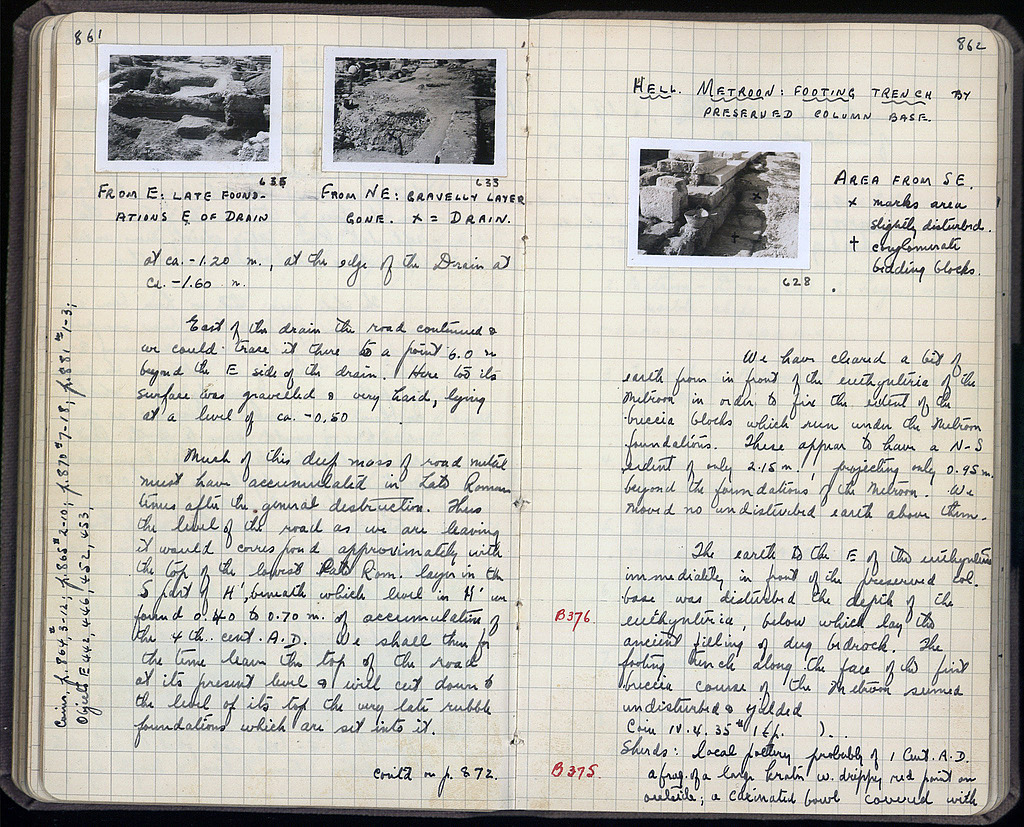 861
635
FROM E: LATE FOUND-
ATIONS E OF DRAIN
633
FROM NE: GRAVELLY LAYER
GONE. x = DRAIN.
at ca. -1.20 m., at the edge of the Drain at
ca. -1.60 m.
East of the drain the road continued &
we could trace it there to a point 6.0 m
beyond the E side of the drain. Here too its
surface was gravelled & very hard, lying
at a level of ca. -0.50
Much of this deep mass of road metal
must have accumulated in Late Roman
times after the general destruction. Thus
the level of the road as we are leaving
it would correspond approximately with
the top of the lowest Late Rom. layer in the
S part of H', beneath which level in H' we
found 0.40 to 0.70 m. of accumulation of
the 4th. cent. A.D. We shall thus for
the time leave the top of the road
at its present level & will cut down to
the level of its top the very late rubble
foundations which are set into it.
cont'd on p. 872.
Coins, p. 864, 3-12; p. 865 #2-10; p. 870 #7-18; p. 881 #1-3;
Objects E 442, 446, 452, 453
862
HELL. METROON: FOOTING TRENCH BY
PRESERVED COLUMN BASE.
628
AREA FROM SE.
x marks area
slightly disturbed.
† conglomerate
bedding blocks.
We have cleared a bit of
earth from in front of the euthynteria of the
Metroon in order to fix the extent of the
breccia blocks which run under the Metroon
foundations. These appear to have a N-S
extent of only 2.15 m, projecting only 0.95 m.
beyond the foundations of the Metroon. We
moved no undisturbed earth above them.
The earth to the E of the euthynteria
immediately in front of the preserved col.
base was disturbed the depth of the
B376
euthynteria, below which lay the
ancient filling of dug bedrock. The
footing trench along the face of the first
breccia course of the Metroon seemed
undisturbed & yielded
Coin IV.4.35 #1 (p. ).
Sherds: local pottery probably of 1 Cent. A.D.
B375
a frag. of a large krater w. drippy red paint on
outside; a carinated bowl covered with